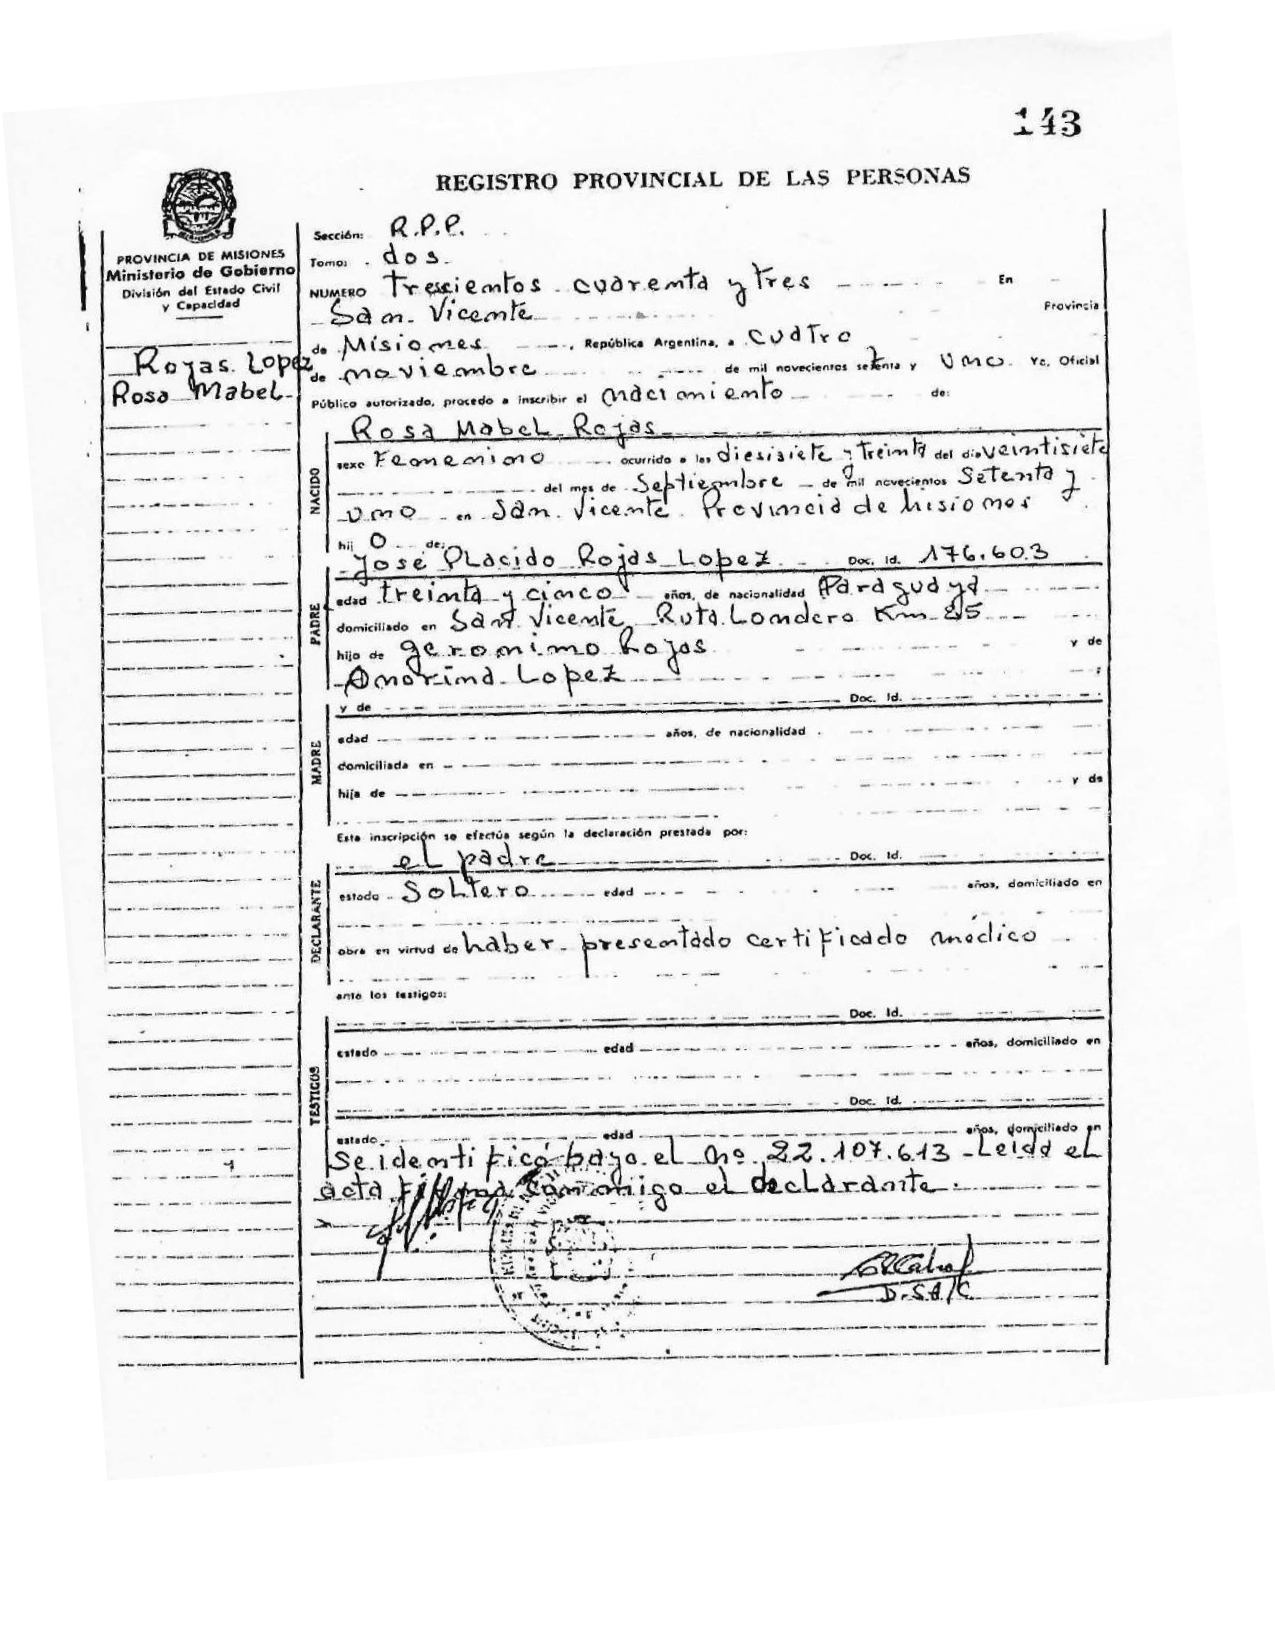 143
REGISTRO PROVINCIAL DE LAS PERSONAS
PROVINCIA DE MISIONES
Ministerio de Gobierno
División del Estado Civil
y Capacidad
Rojas Lopez
Rosa Mabel
Sección: R.P.P.
Tomo: dos
NUMERO Tresientos cuarenta y tres En
San Vicente Provincia
de Misiones, República Argentina, a cuatro
de noviembre de mil novecientos setenta y uno. Yo, Oficial
Público autorizado, procedo a inscribir el nacimiento de:
Rosa Mabel Rojas
NACIDO
sexo Femenino ocurrido a las diesisiete y treinta del día veintisiete
del mes de Septiembre de mil novecientos Setenta y
uno en San Vicente Provincia de Misiones
hij o de:
José Placido Rojas Lopez Doc. Id. 176.603
PADRE
edad treinta y cinco años, de nacionalidad Paraguaya
domiciliado en San Vicente Ruta Londero Km 25
hijo de Geronimo Rojas y de
Anorina Lopez ;
y de Doc. Id.
MADRE
edad años, de nacionalidad
domiciliada en
hija de y de
Esta inscripción se efectúa según la declaración prestada por:
el padre Doc. Id.
DECLARANTE
estado Soltero edad años, domiciliado en
obra en virtud de haber presentado certificado médico
ante los testigos:
Doc. Id.
TESTIGOS
estado edad años, domiciliado en
Doc. Id.
estado edad años, domiciliado en
Se identificó bajo el no 22.107.613 - Leida el
acta firma conmigo el declarante.
D.S.A/C